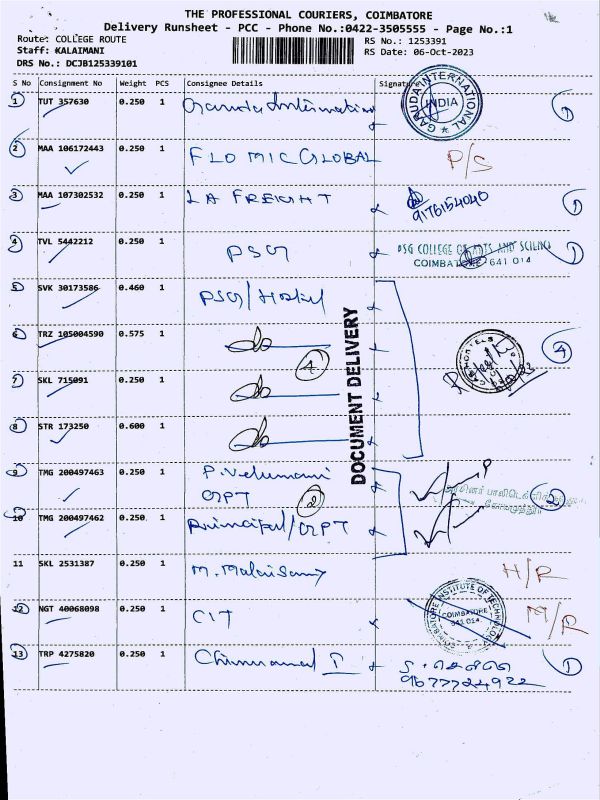 THE PROFESSIONAL COURIERS, COIMBATORE
Delivery Runsheet - PCC - Phone No.:0422-3505555 - Page No.:1
Route: COLLEGE ROUTE
RS No.: 1253391
Staff: KALAIMANI
RS Date: 06-Oct-2023
DRS No.: DCJB125339101
S No Consignment No Weight PCS Consignee Details Signature
1 TUT 357630 0.250 1 Garuda International GARUDA INTERNATIONAL INDIA 1
2 MAA 106172443 0.250 1 FLOMIC GLOBAL P/S
3 MAA 107302532 0.250 1 LA FREIGHT 9176154040 1
4 TVL 5442212 0.250 1 PSG PSG COLLEGE OF ARTS AND SCIENCE COIMBATORE 641 014 1
5 SVK 30173586 0.460 1 PSG/Hostel
6 TRZ 105004590 0.575 1 do 4
4
7 SKL 715091 0.250 1 do
8 STR 173250 0.600 1 do
DOCUMENT DELIVERY
9 TMG 200497463 0.250 1 P. Velumani
GPT 2 2
10 TMG 200497462 0.250 1 Principal/GPT
11 SKL 2531387 0.250 1 M. Malaisamy H/R
12 NGT 40068098 0.250 1 CIT COIMBATORE INSTITUTE OF TECHNOLOGY COIMBATORE 641 014 M/R
13 TRP 4275820 0.250 1 1
9677724922